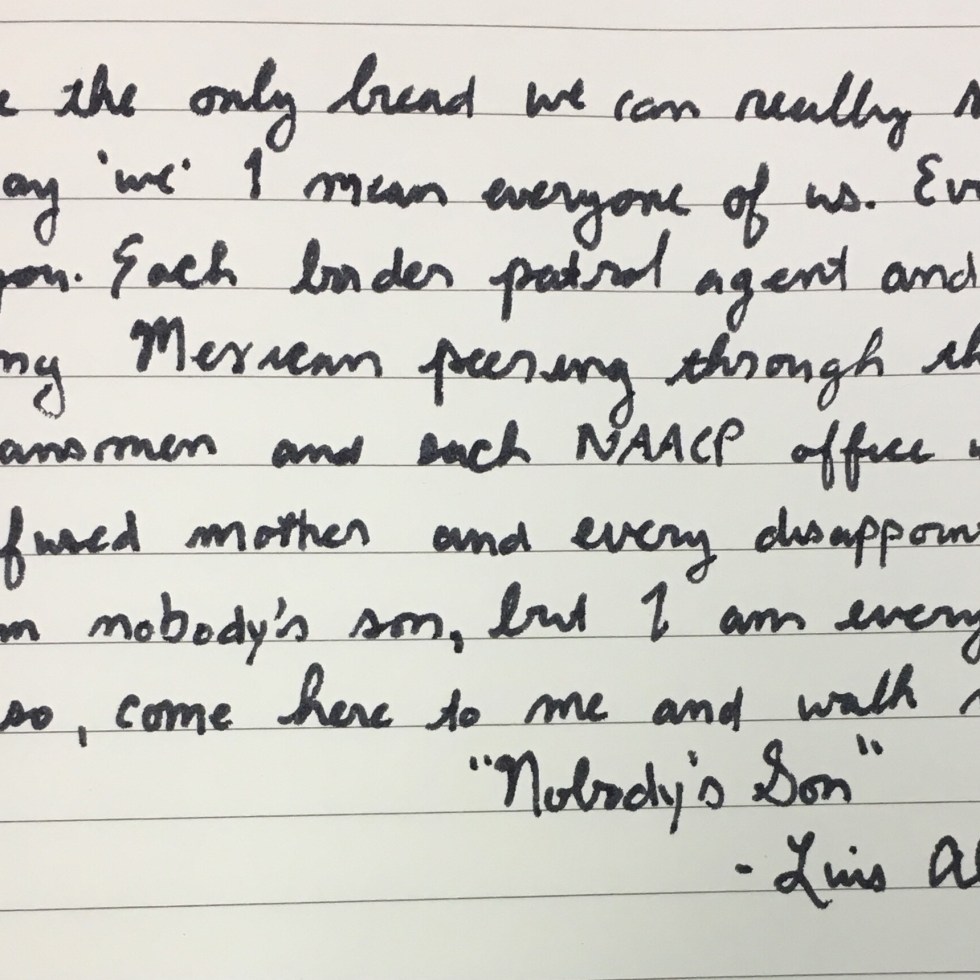 the only bread we can really
'we' I mean everyone of us.
you. Each border patrol agent and
Mexican peering through
ansmen and each NAACP office
fused mother and every disappoin
m nobody's son, but I am every
so, come here to me and walk
"Nobody's Son"
- Luis Al